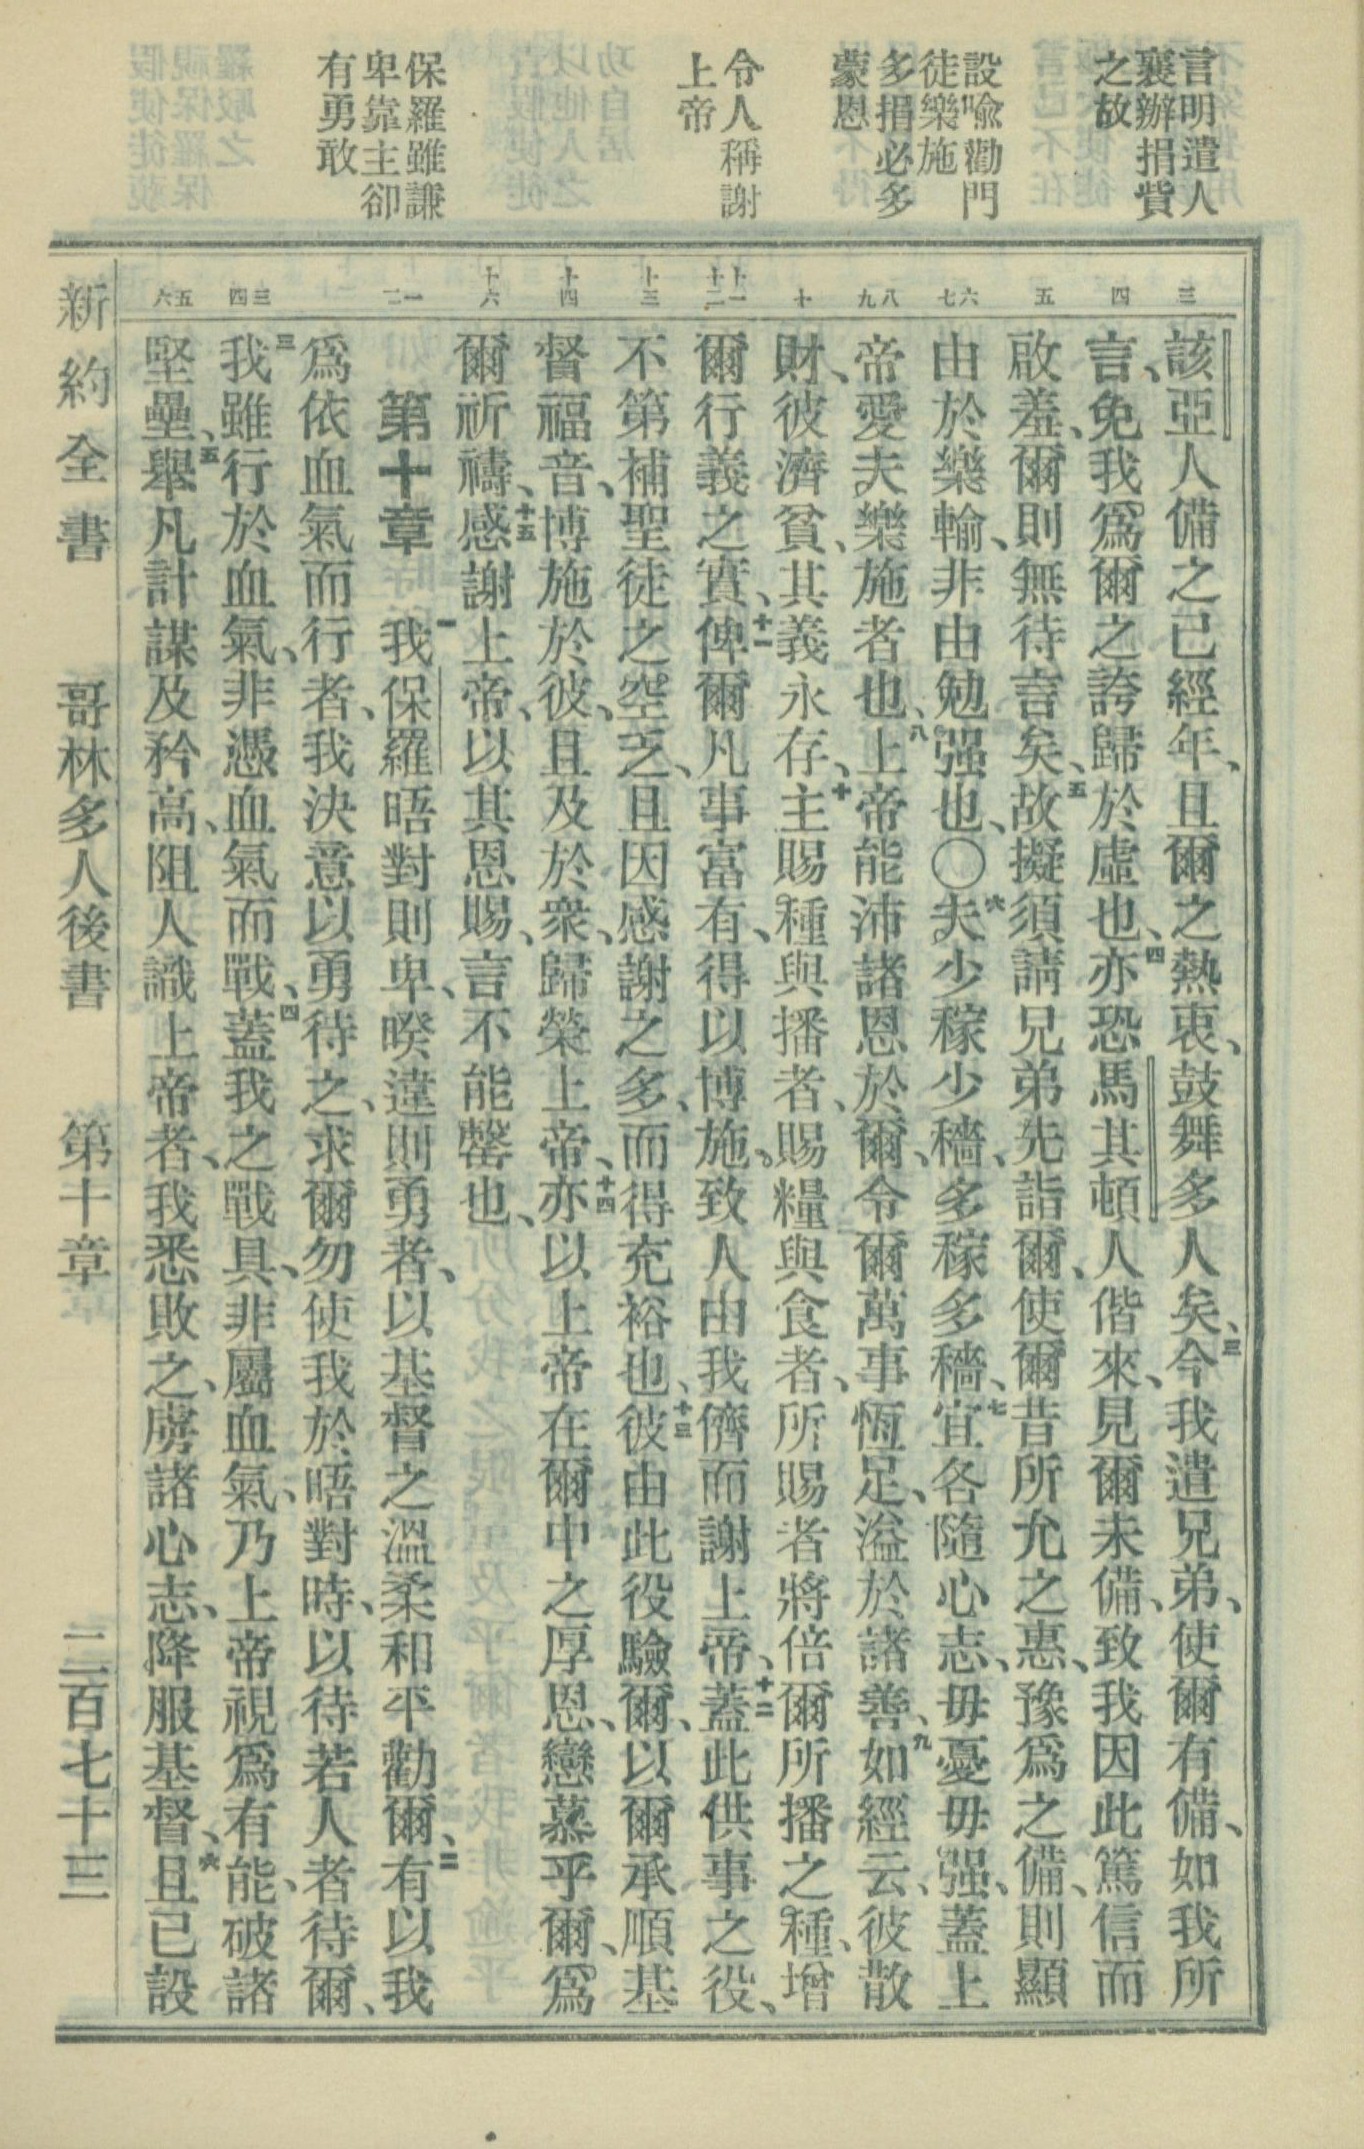 言明遣人
襄辦捐貲
之故
設喩勸門
徒樂施
多捐必多
蒙恩
令人稱謝
上帝
保羅雖謙
卑靠主卻
有勇敢
三
四
五
六七
八九
十
十一十二
十三
十四
十六
一二
三四
五六
該亞人備之已經年、且爾之熱衷、鼓舞多人矣、三今我遣兄弟、使爾有備、如我所
言、免我爲爾之誇歸於虛也、四亦恐馬其頓人偕來、見爾未備、致我因此篤信而
啟羞、爾則無待言矣、五故擬須請兄弟先詣爾、使爾昔所允之惠、豫爲之備、則顯
由於樂輸、非由勉强也、〇六夫少稼少穡、多稼多穡、七宜各隨心志、毋憂毋强、蓋上
帝愛夫樂施者也、八上帝能沛諸恩於爾、令爾萬事恆足、溢於諸善、九如經云、彼散
財、彼濟貧、其義永存、十主賜種與播者、賜糧與食者、所賜者將倍爾所播之種、增
爾行義之實、十一俾爾凡事富有、得以博施、致人由我儕而謝上帝、十二蓋此供事之役、
不第補聖徒之空乏、且因感謝之多、而得充裕也、十三彼由此役驗爾、以爾承順基
督福音、博施於彼、且及於衆、歸榮上帝、十四亦以上帝在爾中之厚恩、戀慕乎爾、爲
爾祈禱、十五感謝上帝、以其恩賜、言不能罄也、
第十章 一我保羅晤對則卑、暌違則勇者、以基督之溫柔和平勸爾、二有以我
爲依血氣而行者、我決意以勇待之、求爾勿使我於晤對時、以待若人者待爾、
三我雖行於血氣、非憑血氣而戰、四蓋我之戰具、非屬血氣、乃上帝視爲有能、破諸
堅壘、五舉凡計謀及矜高、阻人識上帝者、我悉敗之、虜諸心志、降服基督、六且已設
新約全書 哥林多人後書 第十章 二百七十三